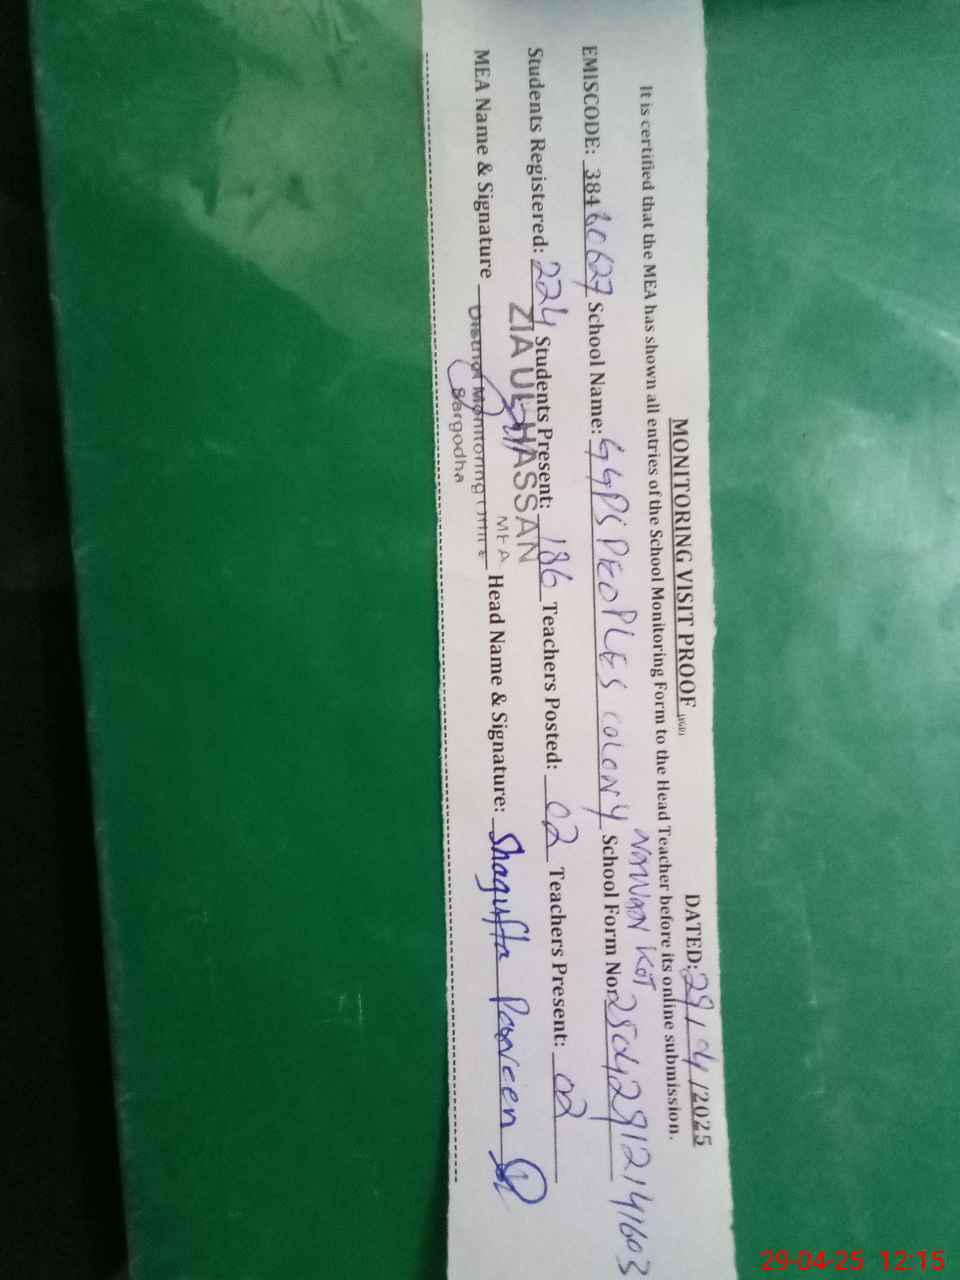 MONITORING VISIT PROOF DATED: 29/04/2025
It is certified that the MEA has shown all entries of the School Monitoring Form to the Head Teacher before its online submission.
NORWAN KOT
EMISCODE: 38460627 School Name: GGPS PEOPLES COLONY School Form No: 25042912141603
Students Registered: 224 Students Present: 186 Teachers Posted: 02 Teachers Present: 02
ZIA UL HASSAN
MEA
MEA Name & Signature Head Name & Signature: Shagufta Parveen
District Monitoring Office
Sargodha
29-04-25 12:15